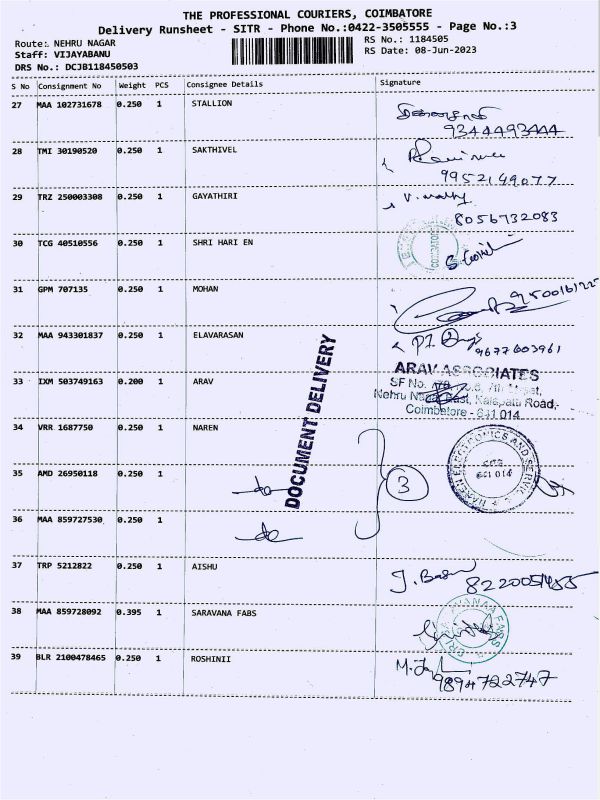 THE PROFESSIONAL COURIERS, COIMBATORE
Delivery Runsheet - SITR - Phone No.:0422-3505555 - Page No.:3
Route: NEHRU NAGAR RS No.: 1184505
Staff: VIJAYABANU RS Date: 08-Jun-2023
DRS No.: DCJB118450503
S No Consignment No Weight PCS Consignee Details Signature
27 MAA 102731678 0.250 1 STALLION
9344493444
28 TMI 30190520 0.250 1 SAKTHIVEL
9952149077
29 TRZ 250003308 0.250 1 GAYATHIRI
8056732083
30 TCG 40510556 0.250 1 SHRI HARI EN
31 GPM 707135 0.250 1 MOHAN
32 MAA 943301837 0.250 1 ELAVARASAN
9677603961
33 IXM 503749163 0.200 1 ARAV
ARAV ASSOCIATES
SF No.
Nehru Nagar East, Kalapatti Road,
Coimbatore - 641 014
DOCUMENT DELIVERY
34 VRR 1687750 0.250 1 NAREN
NAREN ELECTRONICS AND SERVICE
641 014
35 AMD 26950118 0.250 1
do 3
36 MAA 859727530 0.250 1
do
37 TRP 5212822 0.250 1 AISHU
38 MAA 859728092 0.395 1 SARAVANA FABS
39 BLR 2100478465 0.250 1 ROSHINII
9894722747